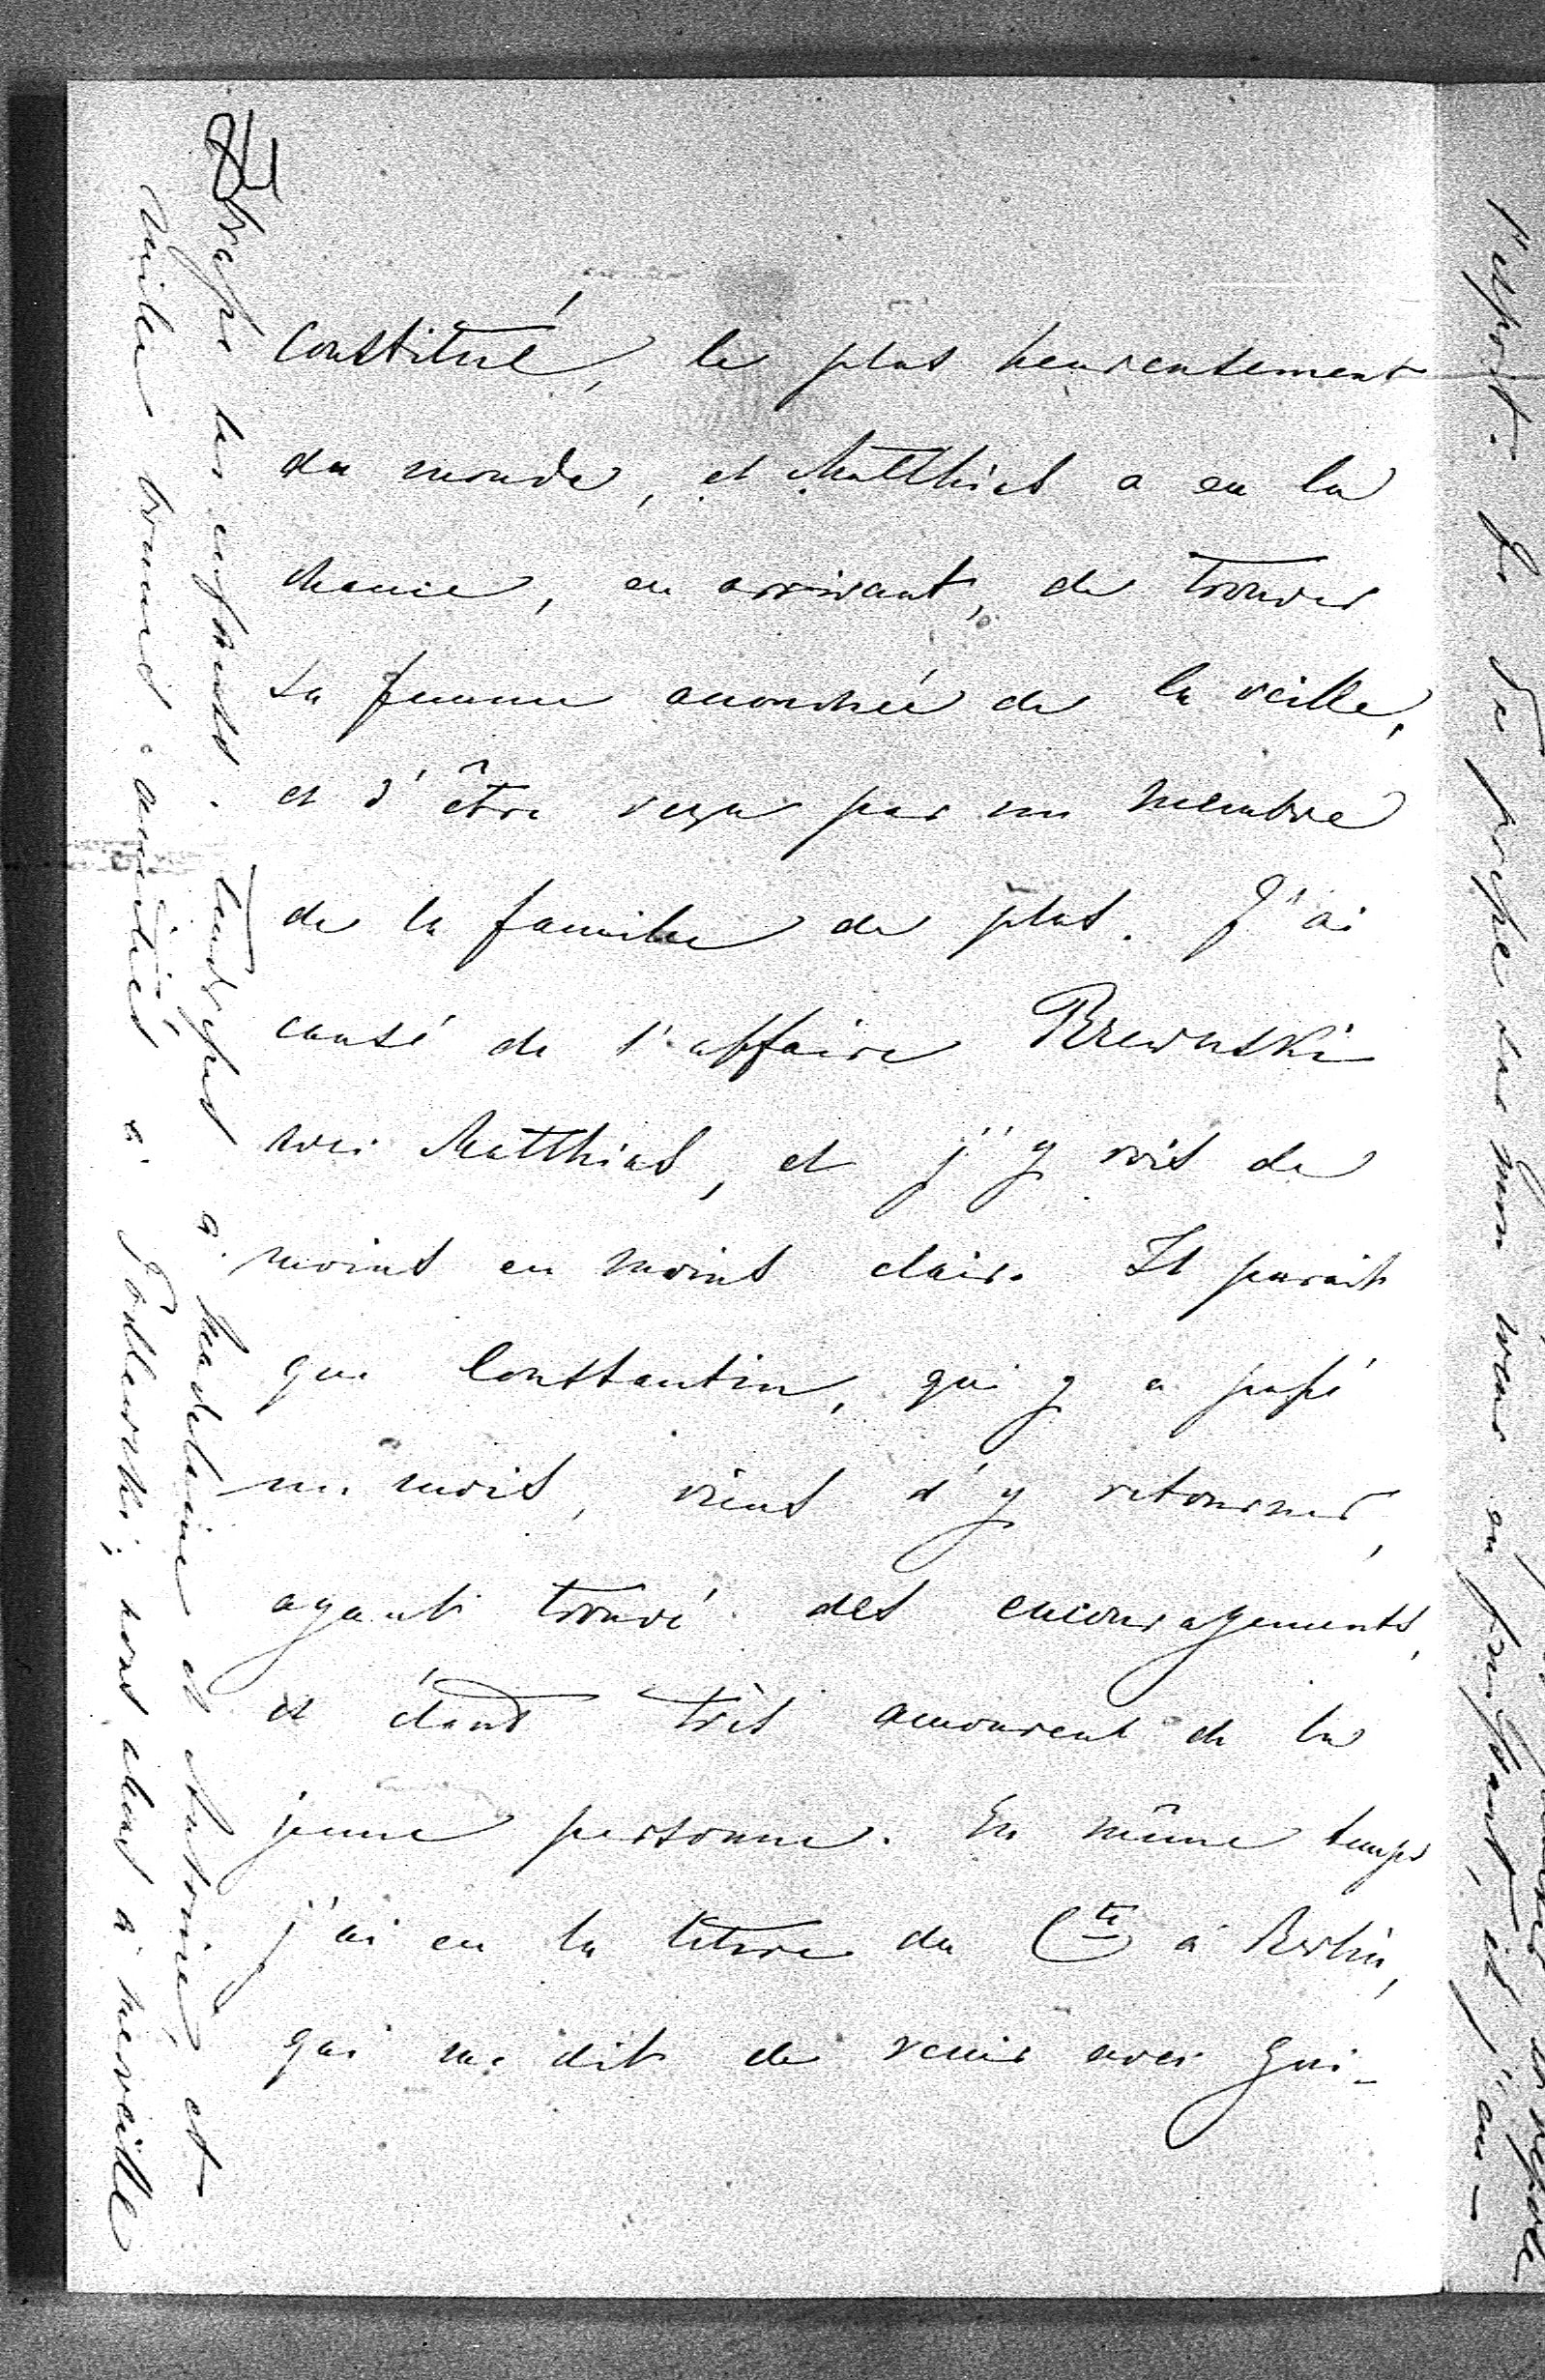 84
constitué, le plus heureusement
du monde, et Matthias a eu la
chance, en arrivant, de trouver
sa femme accouchée de la veille,
et d'être reçu par un membre
de la famille de plus. J'ai
causé de l'affaire Brewnski
avec Matthias, et j'y vois de
moins en moins clair. Il parait
que Constantin, qui y a passé
un mois, vient d'y retourner,
ayant trouvé des encouragements,
et étant très amoureux de la
jeune personne. En même temps
j'ai eu la lettre du Cte à Berlin,
qui me dit de venir avec Gui-
les enfants. Tendresses à Madeleine et Antoine, et
amitiés à nous allons à merveille